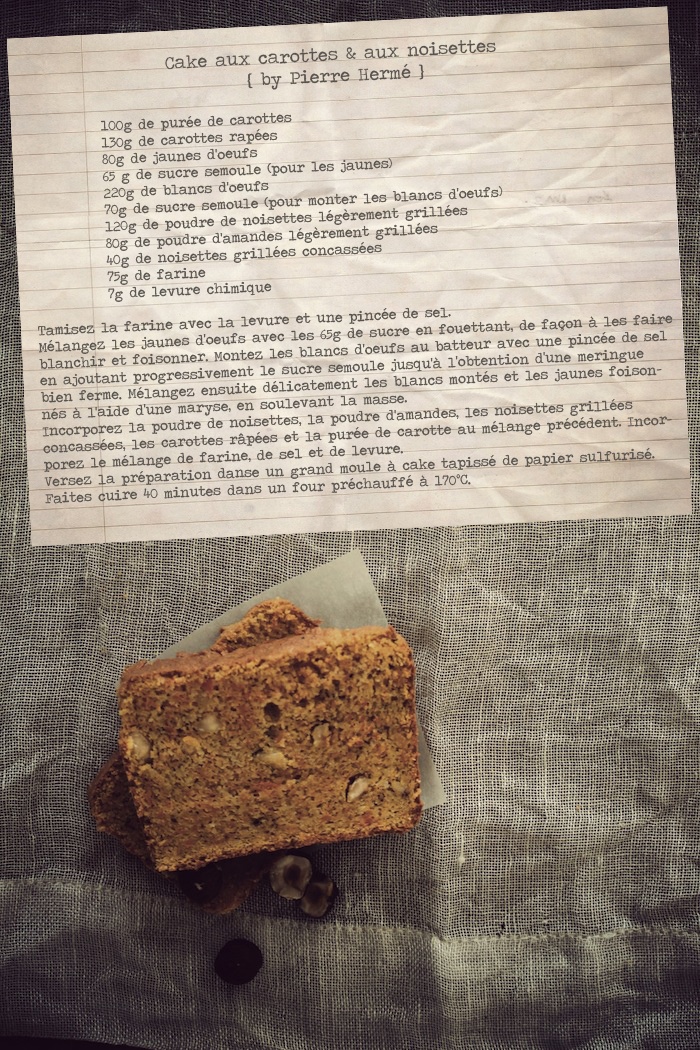 Cake aux carottes & aux noisettes
{ by Pierre Hermé }
100g de purée de carottes
130g de carottes rapées
80g de jaunes d'oeufs
65 g de sucre semoule (pour les jaunes)
220g de blancs d'oeufs
70g de sucre semoule (pour monter les blancs d'oeufs)
120g de poudre de noisettes légèrement grillées
80g de poudre d'amandes légèrement grillées
40g de noisettes grillées concassées
75g de farine
7g de levure chimique
Tamisez la farine avec la levure et une pincée de sel.
Mélangez les jaunes d'oeufs avec les 65g de sucre en fouettant, de façon à les faire
blanchir et foisonner. Montez les blancs d'oeufs au batteur avec une pincée de sel
en ajoutant progressivement le sucre semoule jusqu'à l'obtention d'une meringue
bien ferme. Mélangez ensuite délicatement les blancs montés et les jaunes foison-
nés à l'aide d'une maryse, en soulevant la masse.
Incorporez la poudre de noisettes, la poudre d'amandes, les noisettes grillées
concassées, les carottes râpées et la purée de carotte au mélange précédent. Incor-
porez le mélange de farine, de sel et de levure.
Versez la préparation danse un grand moule à cake tapissé de papier sulfurisé.
Faites cuire 40 minutes dans un four préchauffé à 170°C.